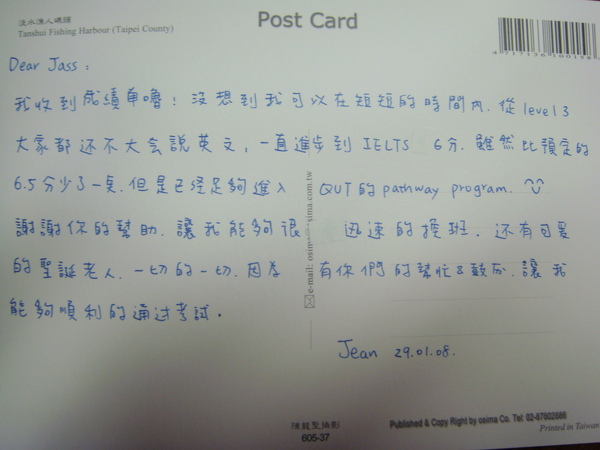 淡水漁人碼頭
Tanshui Fishing Harbour (Taipei County)
Post Card
Dear Jass:
我收到成績單嚕!沒想到我可以在短短的時間內.從level 3
大家都还不太会說英文,一直進步到 IELTS 6分.雖然比預定的
6.5分少了一奌.但是已经足夠進入 QUT的pathway program.
謝謝你的幫助.讓我能夠很 迅速的換班.还有可爱
的聖誕老人.一切的一切.因為 有你們的幫忙&鼓励.讓我
能夠順利的通过考試.
Jean 29.01.08.
e-mail:
陳龍聖攝影
605-37
Published & Copy Right by osima Co. Tel: 02-87802886
Printed in Taiwan